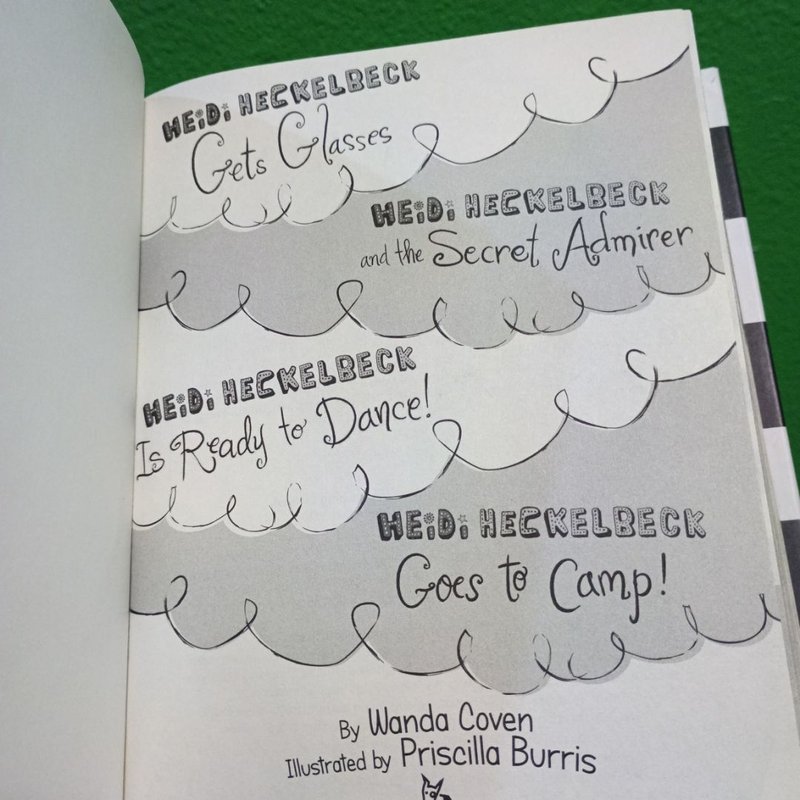 HEiDi HECKELBECK
Gets Glasses
HEiDi HECKELBECK
and the Secret Admirer
HEiDi HECKELBECK
Is Ready to Dance!
HEiDi HECKELBECK
Goes to Camp!
By Wanda Coven
Illustrated by Priscilla Burris